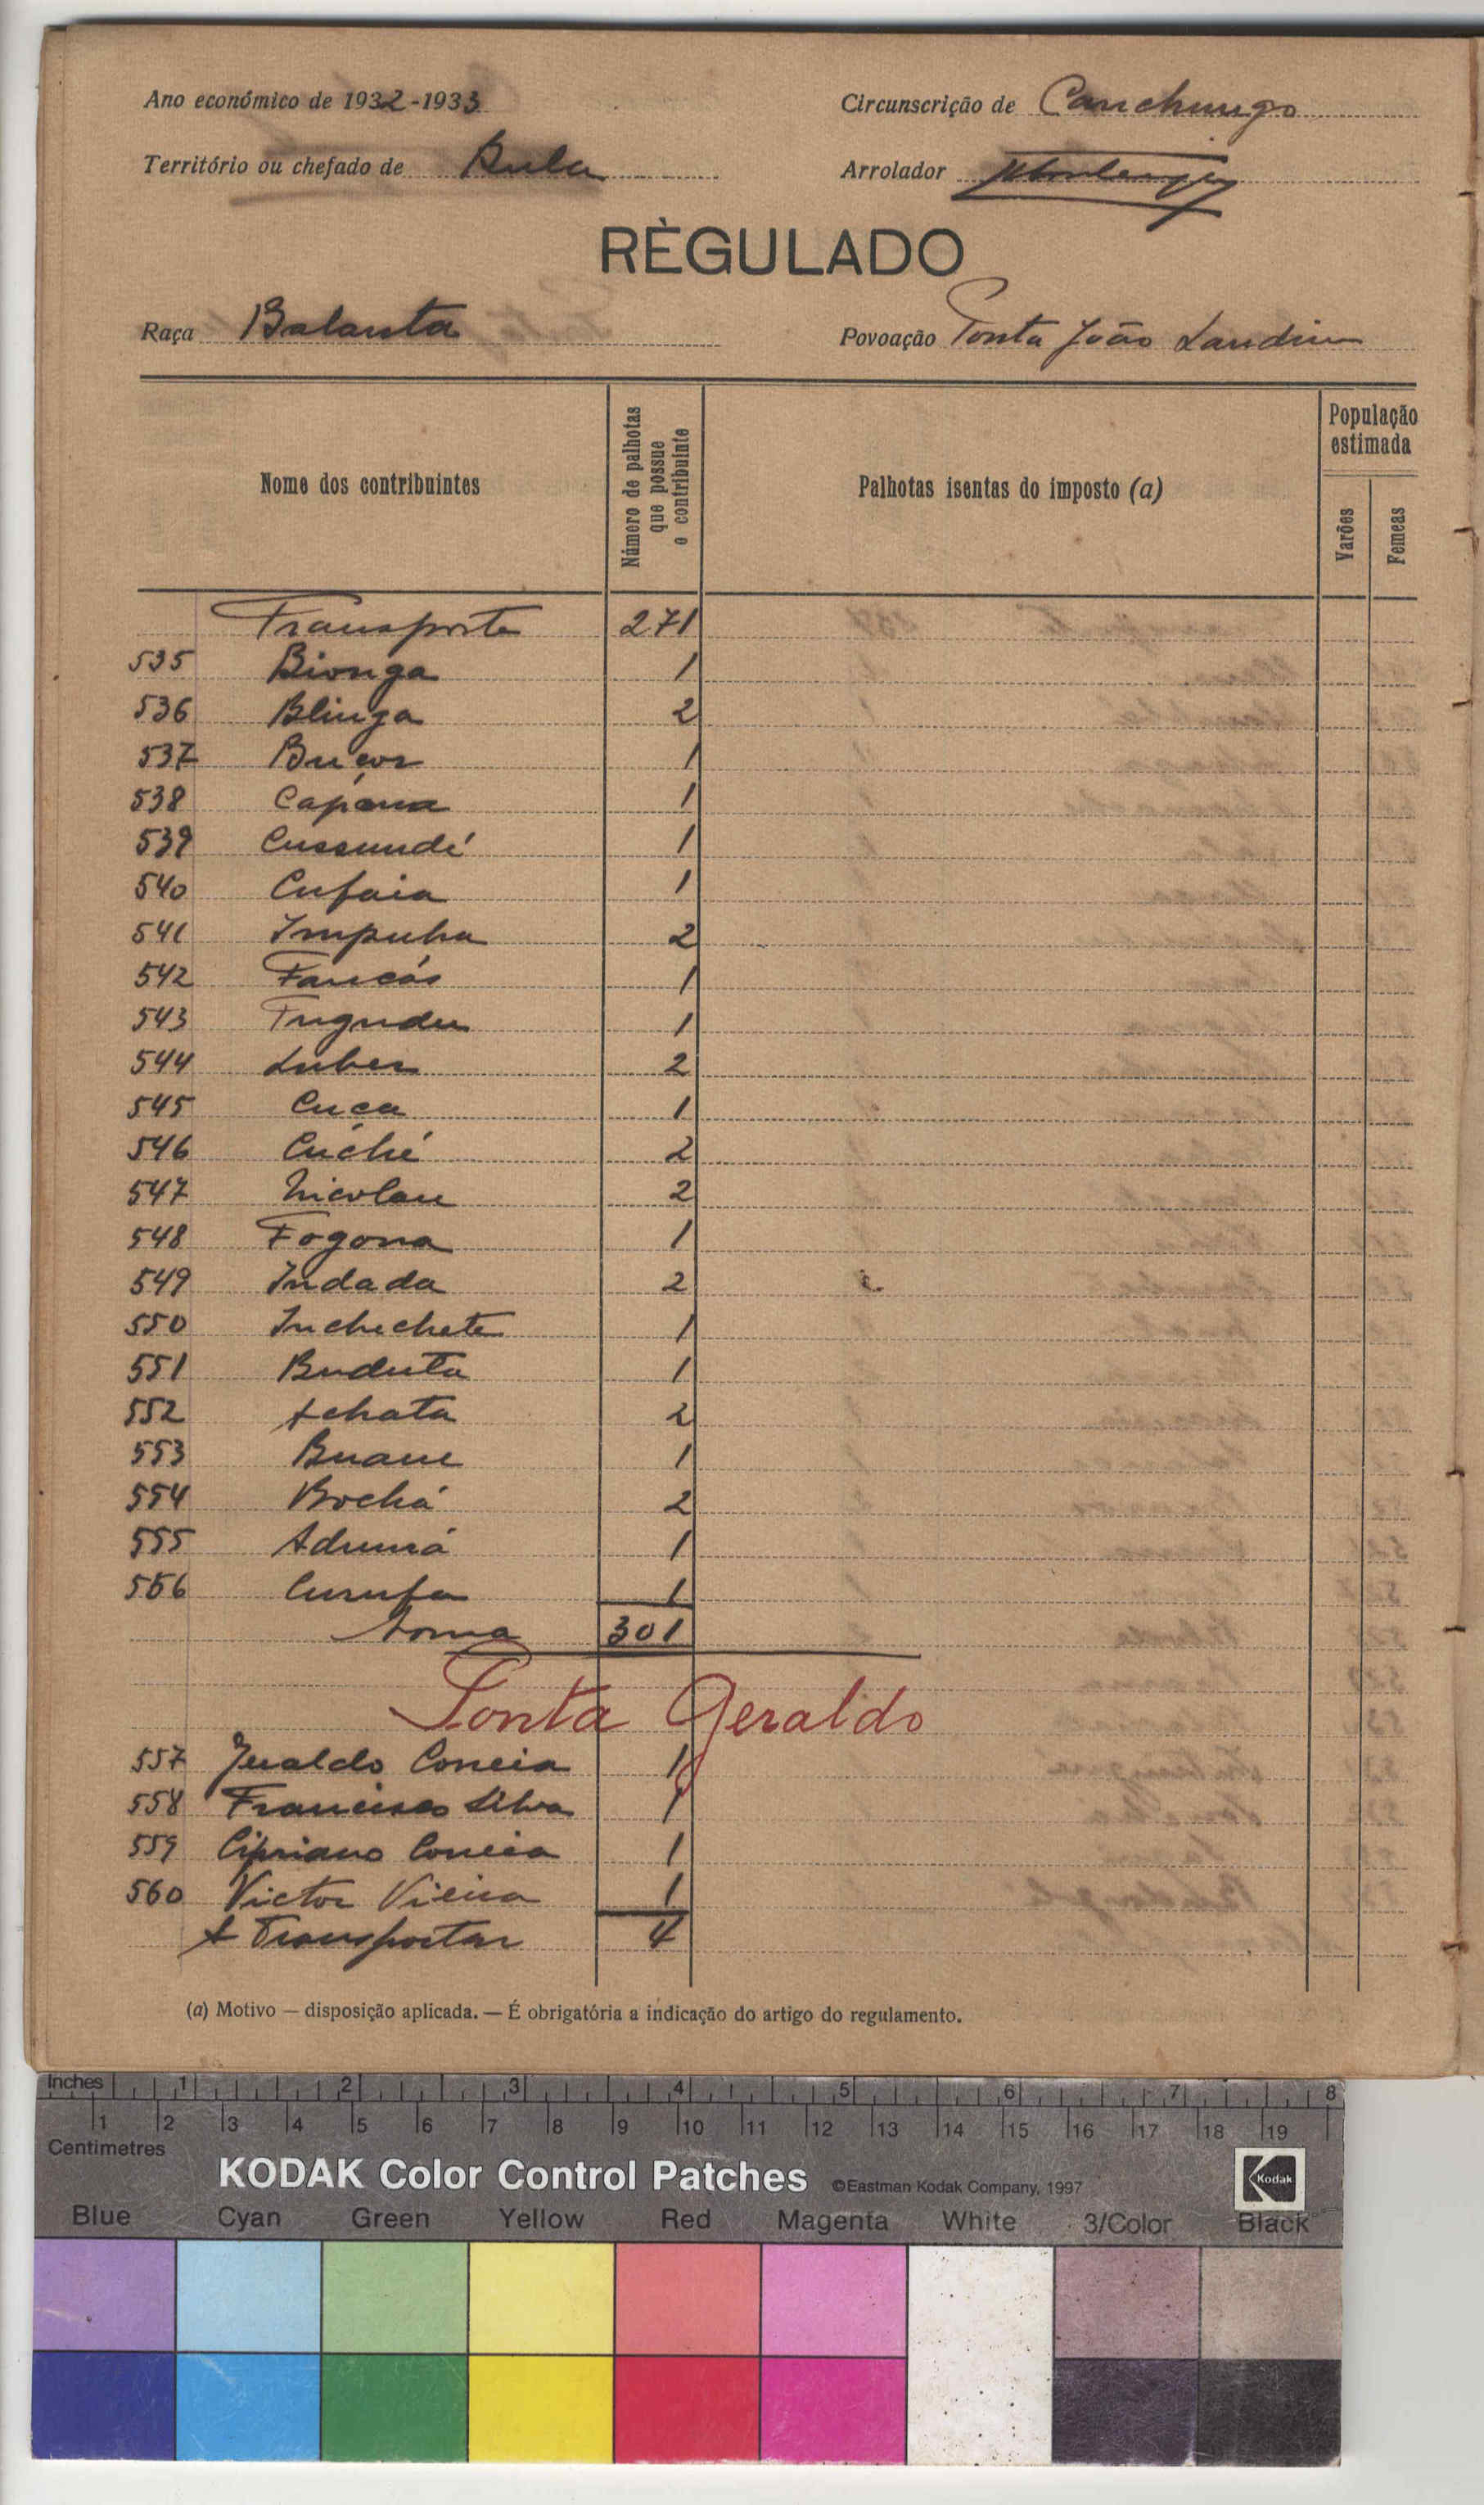 Ano económico de 1932-1933
Circunscrição de Canchungo
Território ou chefado de Bula
Arrolador
RÈGULADO
Raça Balanta
Povoação Ponta João Landim
Nome dos contribuintes
Número de palhotas que possue o contribuinte
Palhotas isentas do imposto (a)
População estimada
Varões
Femeas
Transporte 271
535 Bionga 1
536 Blinga 2
537 Buçor 1
538 Capana 1
539 Cussundé 1
540 Cufaia 1
541 Impuha 2
542 Fancás 1
543 Tugudu 1
544 Luber 2
545 Cuca 1
546 Cuché 2
547 Nicolau 2
548 Fogona 1
549 Indada 2
550 Inchichete 1
551 Buduta 1
552 Achata 2
553 Buane 1
554 Bochá 2
555 Adumá 1
556 Curufa 1
Soma 301
Ponta Geraldo
557 Geraldo Correia 1
558 Francisco Silva 1
559 Cipriano Correia 1
560 Victor Vieira 1
A Transportar 4
(a) Motivo — disposição aplicada. — É obrigatória a indicação do artigo do regulamento.
Inches 1 2 3 4 5 6 7 8
1 2 3 4 5 6 7 8 9 10 11 12 13 14 15 16 17 18 19
Centimetres
KODAK Color Control Patches ©Eastman Kodak Company, 1997 Kodak
Blue Cyan Green Yellow Red Magenta White 3/Color Black